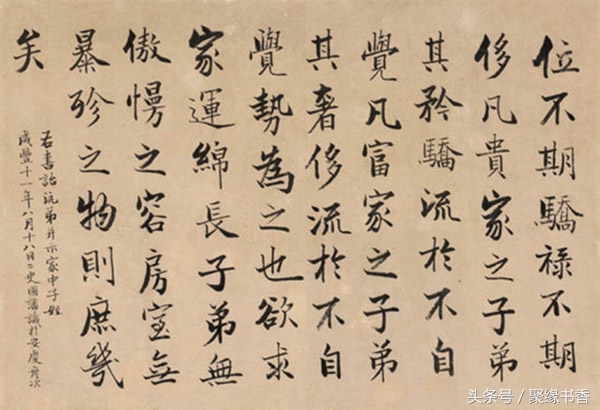 位不期驕禄不期
侈凡貴家之子弟
其矜驕流於不自
覺凡富家之子弟
其奢侈流於不自
覺勢為之也欲求
家運綿長子弟無
傲慢之容房室無
暴殄之物則庶幾
矣
右書詒沅弟并示家中子姪
咸豐十一年八月十八日國藩識於安慶舟次
头条号 / 聚缘书香